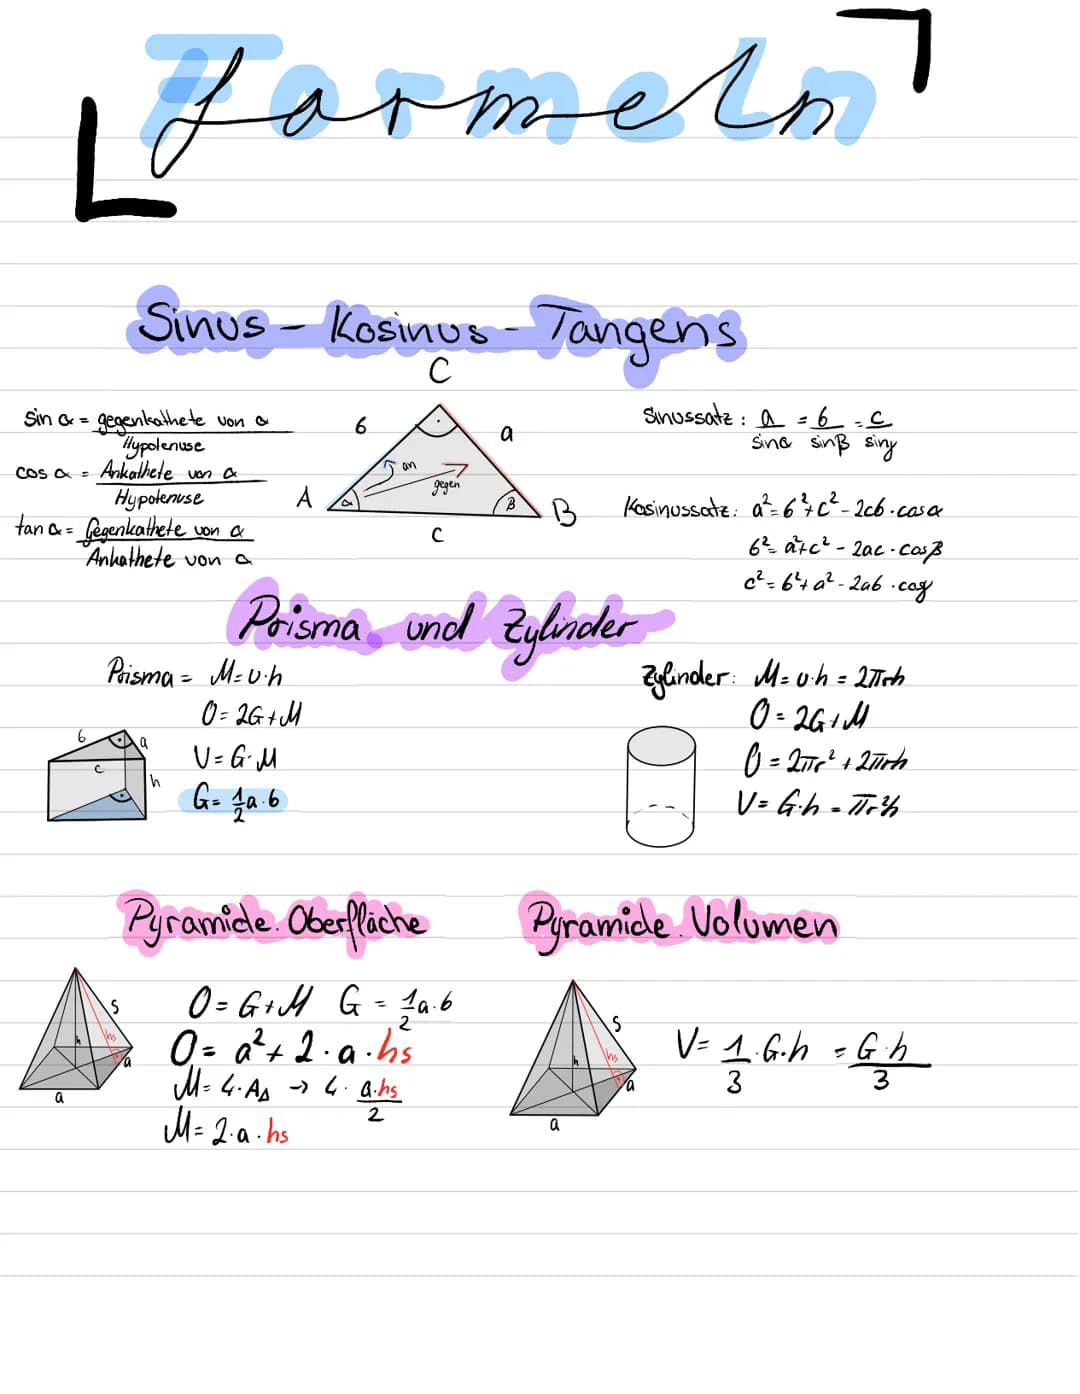 Formeln
Sinus - Kosinus - Tangens
sin α = gegenkathete von α / Hypotenuse
cos α = Ankathete von α / Hypotenuse
tan α = Gegenkathete von α / Ankathete von α
C
b
a
an
gegen
A
α
β
B
c
Sinussatz: a/sinα = b/sinβ = c/sinγ
Kosinussatz: a² = b² + c² - 2cb · cosα
b² = a² + c² - 2ac · cosβ
c² = b² + a² - 2ab · cosγ
Prisma und Zylinder
Prisma = M = u·h
O = 2G + M
V = G·M
G = 1/2 a·b
b
a
c
h
Zylinder: M = u·h = 2πrh
O = 2G + M
O = 2πr² + 2πrh
V = G·h = πr²h
Pyramide Oberfläche
s
h
hs
a
a
O = G + M G = 1/2 a·b
O = a² + 2·a·hs
M = 4·A△ → 4· a·hs/2
M = 2·a·hs
Pyramide Volumen
s
h
hs
a
a
V = 1/3·G·h = G·h/3